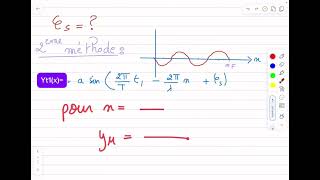 φs = ?
2ème méthodes
x
Yt1(x)= a sin (2π/T t1 - 2π/λ x + φs)
pour x = ___
yM = ___